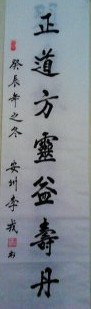 正道方靈益壽丹
癸辰年之冬 安州李戎